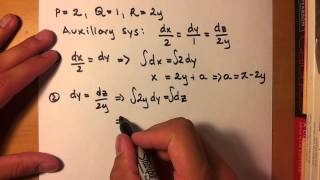 P = 2, Q = 1, R = 2y
Auxiliary sys: dx/2 = dy/1 = dz/2y
dx/2 = dy => ∫dx = ∫2dy
x = 2y + a => a = x - 2y
② dy = dz/2y => ∫2y dy = ∫dz
=